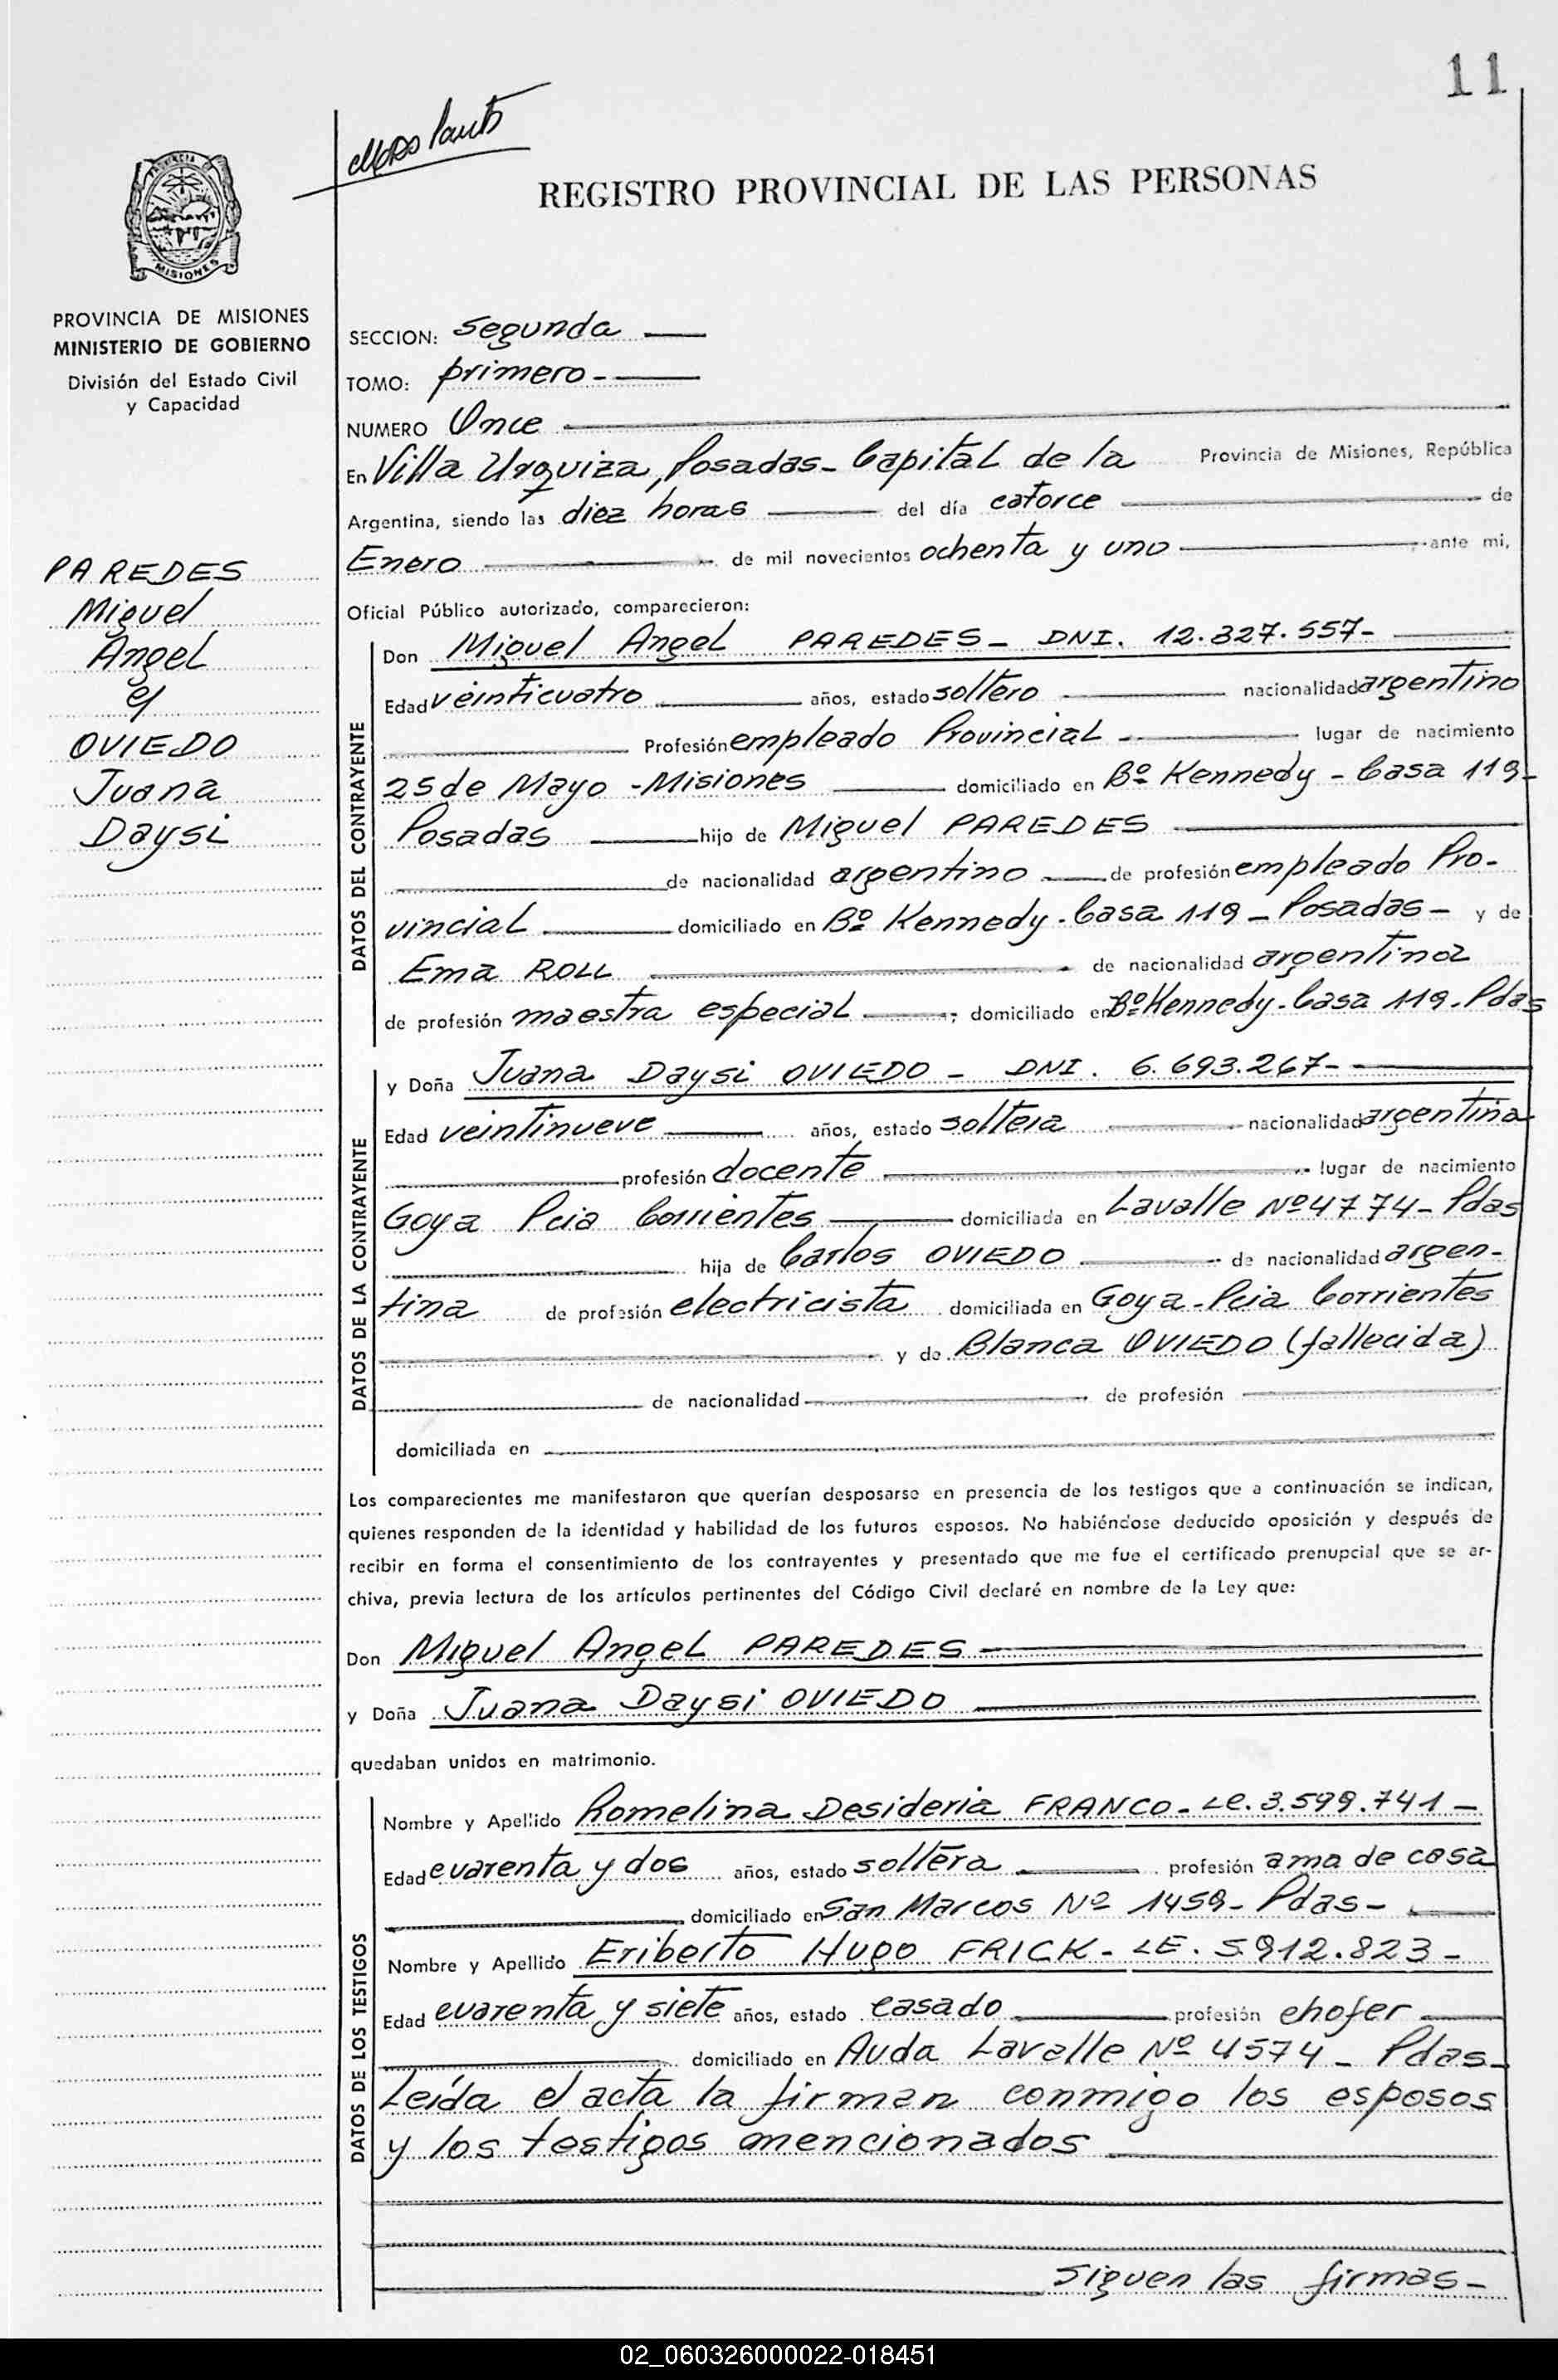 11
REGISTRO PROVINCIAL DE LAS PERSONAS
PROVINCIA
MISIONES
PROVINCIA DE MISIONES
MINISTERIO DE GOBIERNO
División del Estado Civil
y Capacidad
PAREDES
Miguel
Angel
y
OVIEDO
Juana
Daysi
SECCION: Segunda
TOMO: primero-
NUMERO Once
En Villa Urquiza, Posadas- Capital de la Provincia de Misiones, República
Argentina, siendo las diez horas del día catorce de
Enero de mil novecientos ochenta y uno ante mi,
Oficial Público autorizado, comparecieron:
DATOS DEL CONTRAYENTE
Don Miguel Angel PAREDES- DNI. 12.327.557-
Edad veinticuatro años, estado soltero nacionalidad argentino
Profesión empleado Provincial lugar de nacimiento
25 de Mayo -Misiones domiciliado en Bº Kennedy - Casa 119-
Posadas hijo de Miguel PAREDES
de nacionalidad argentino de profesión empleado Pro-
vincial domiciliado en Bº Kennedy- Casa 119- Posadas- y de
Ema ROLL de nacionalidad argentina
de profesión maestra especial ; domiciliado en Bº Kennedy- Casa 119- Pdas
DATOS DE LA CONTRAYENTE
y Doña Juana Daysi OVIEDO - DNI. 6.693.267-
Edad veintinueve años, estado soltera nacionalidad argentina
profesión docente lugar de nacimiento
Goya Pcia Corrientes domiciliada en Lavalle Nº 4774- Pdas
hija de Carlos OVIEDO de nacionalidad argen-
tina de profesión electricista domiciliada en Goya- Pcia Corrientes
y de Blanca OVIEDO (fallecida)
de nacionalidad de profesión
domiciliada en
Los comparecientes me manifestaron que querían desposarse en presencia de los testigos que a continuación se indican,
quienes responden de la identidad y habilidad de los futuros esposos. No habiéndose deducido oposición y después de
recibir en forma el consentimiento de los contrayentes y presentado que me fue el certificado prenupcial que se ar-
chiva, previa lectura de los artículos pertinentes del Código Civil declaré en nombre de la Ley que:
Don Miguel Angel PAREDES
y Doña Juana Daysi OVIEDO
quedaban unidos en matrimonio.
DATOS DE LOS TESTIGOS
Nombre y Apellido Romelina Desideria FRANCO- LC. 3.599.741-
Edad cuarenta y dos años, estado soltera profesión ama de casa
domiciliado en San Marcos Nº 1459- Pdas-
Nombre y Apellido Eriberto Hugo FRICK- LE. 5.912.823-
Edad cuarenta y siete años, estado casado profesión chofer
domiciliado en Avda Lavalle Nº 4574- Pdas-
Leída el acta la firman conmigo los esposos
y los testigos mencionados
Siguen las firmas-
02_060326000022-018451